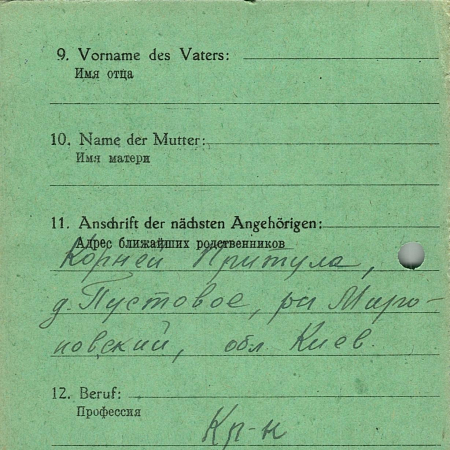 9. Vorname des Vaters:
Имя отца
10. Name der Mutter:
Имя матери
11. Anschrift der nächsten Angehörigen:
Адрес ближайших родственников
Корней Притула,
д. Пустовое, ра Миро-
новский, обл Киев.
12. Beruf:
Профессия
Кр-н